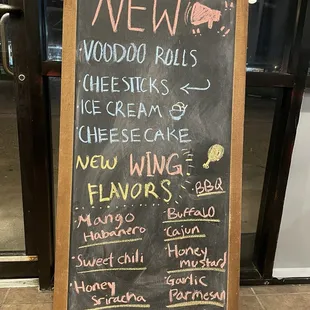 NEW
·VOODOO ROLLS
·CHEESTICKS
·ICE CREAM
·CHEESECAKE
NEW WING
FLAVORS
·BBQ
·Mango
Habanero
·Sweet chili
·Honey
Sriracha
·Buffalo
·Cajun
·Honey
mustard
·Garlic
Parmesan